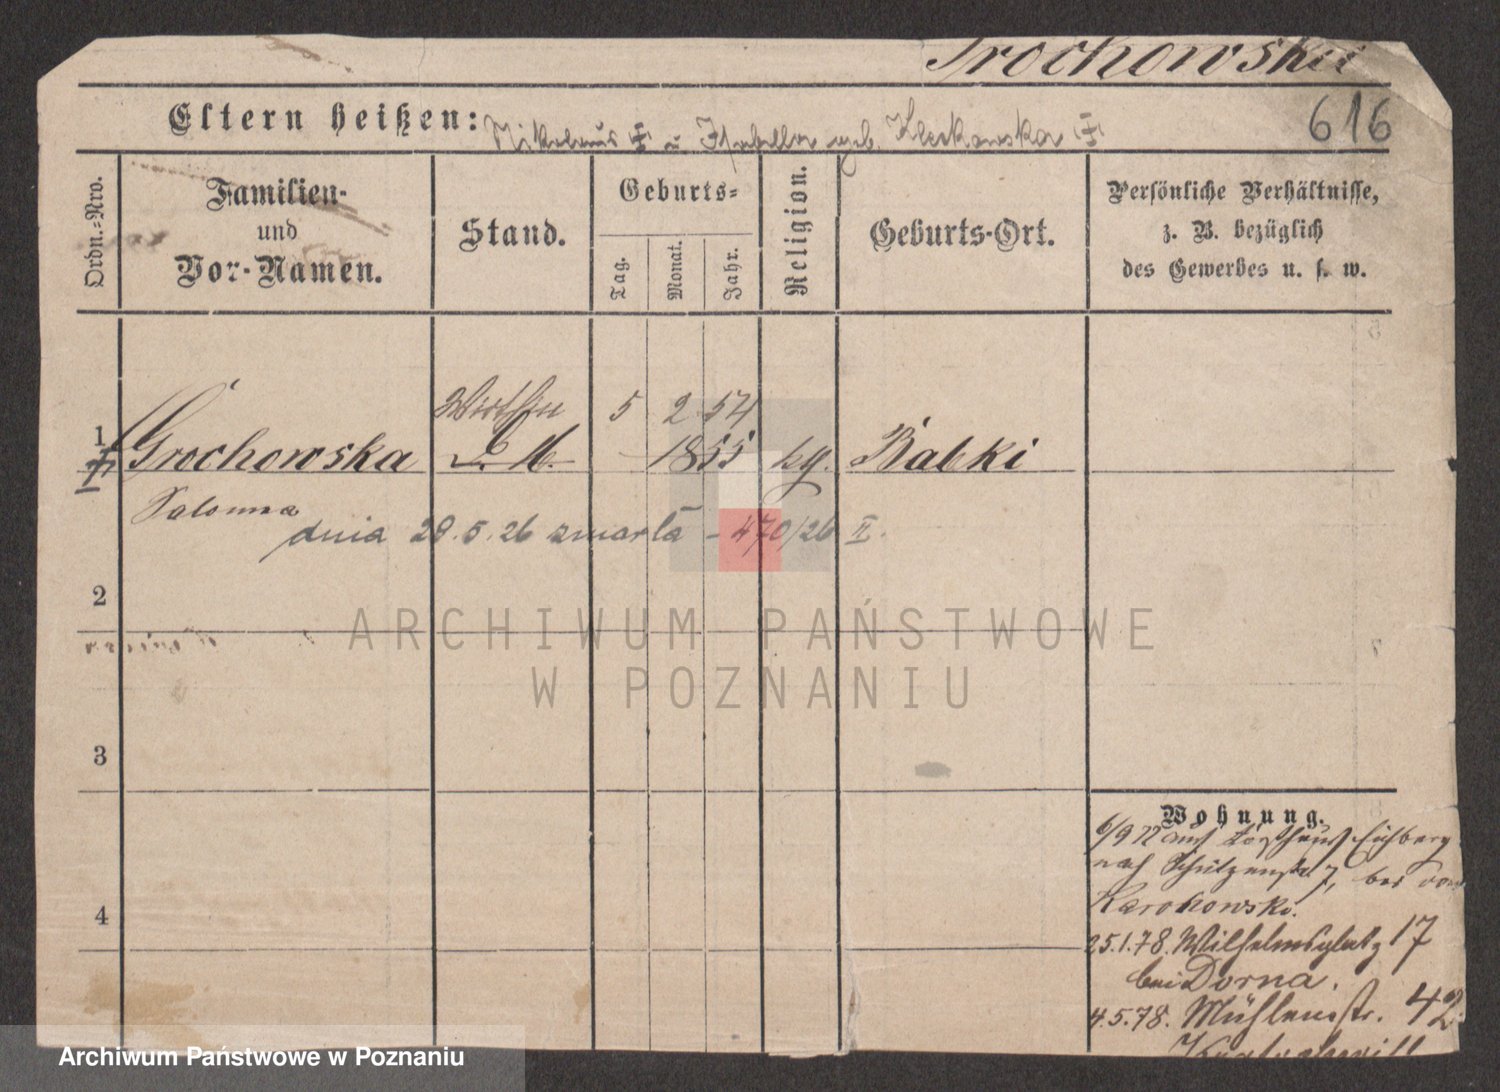 Grochowska
616
Eltern heißen: Nikolaus † u Isabella geb. Kleskowska †
Ordn.-Nro.
Familien- und Vor-Namen.
Stand.
Geburts-
Tag.
Monat.
Jahr.
Religion.
Geburts-Ort.
Persönliche Verhältnisse,
z. B. bezüglich
des Gewerbes u. s. w.
Wirthin 5 2 54
1 Grochowska D. M. 1855 kg. Babki
Salomea
dnia 28.5.26 zmarła - 470/26 II.
2
3
4
Wohnung.
6/9 77 aus Eichberg
nach Schützenstr 7, bei von
Karchowski.
25.1.78. Wilhelmsplatz 17
bei Dorna.
4.5.78. Mühlenstr. 42
ARCHIWUM PAŃSTWOWE
W POZNANIU
Archiwum Państwowe w Poznaniu